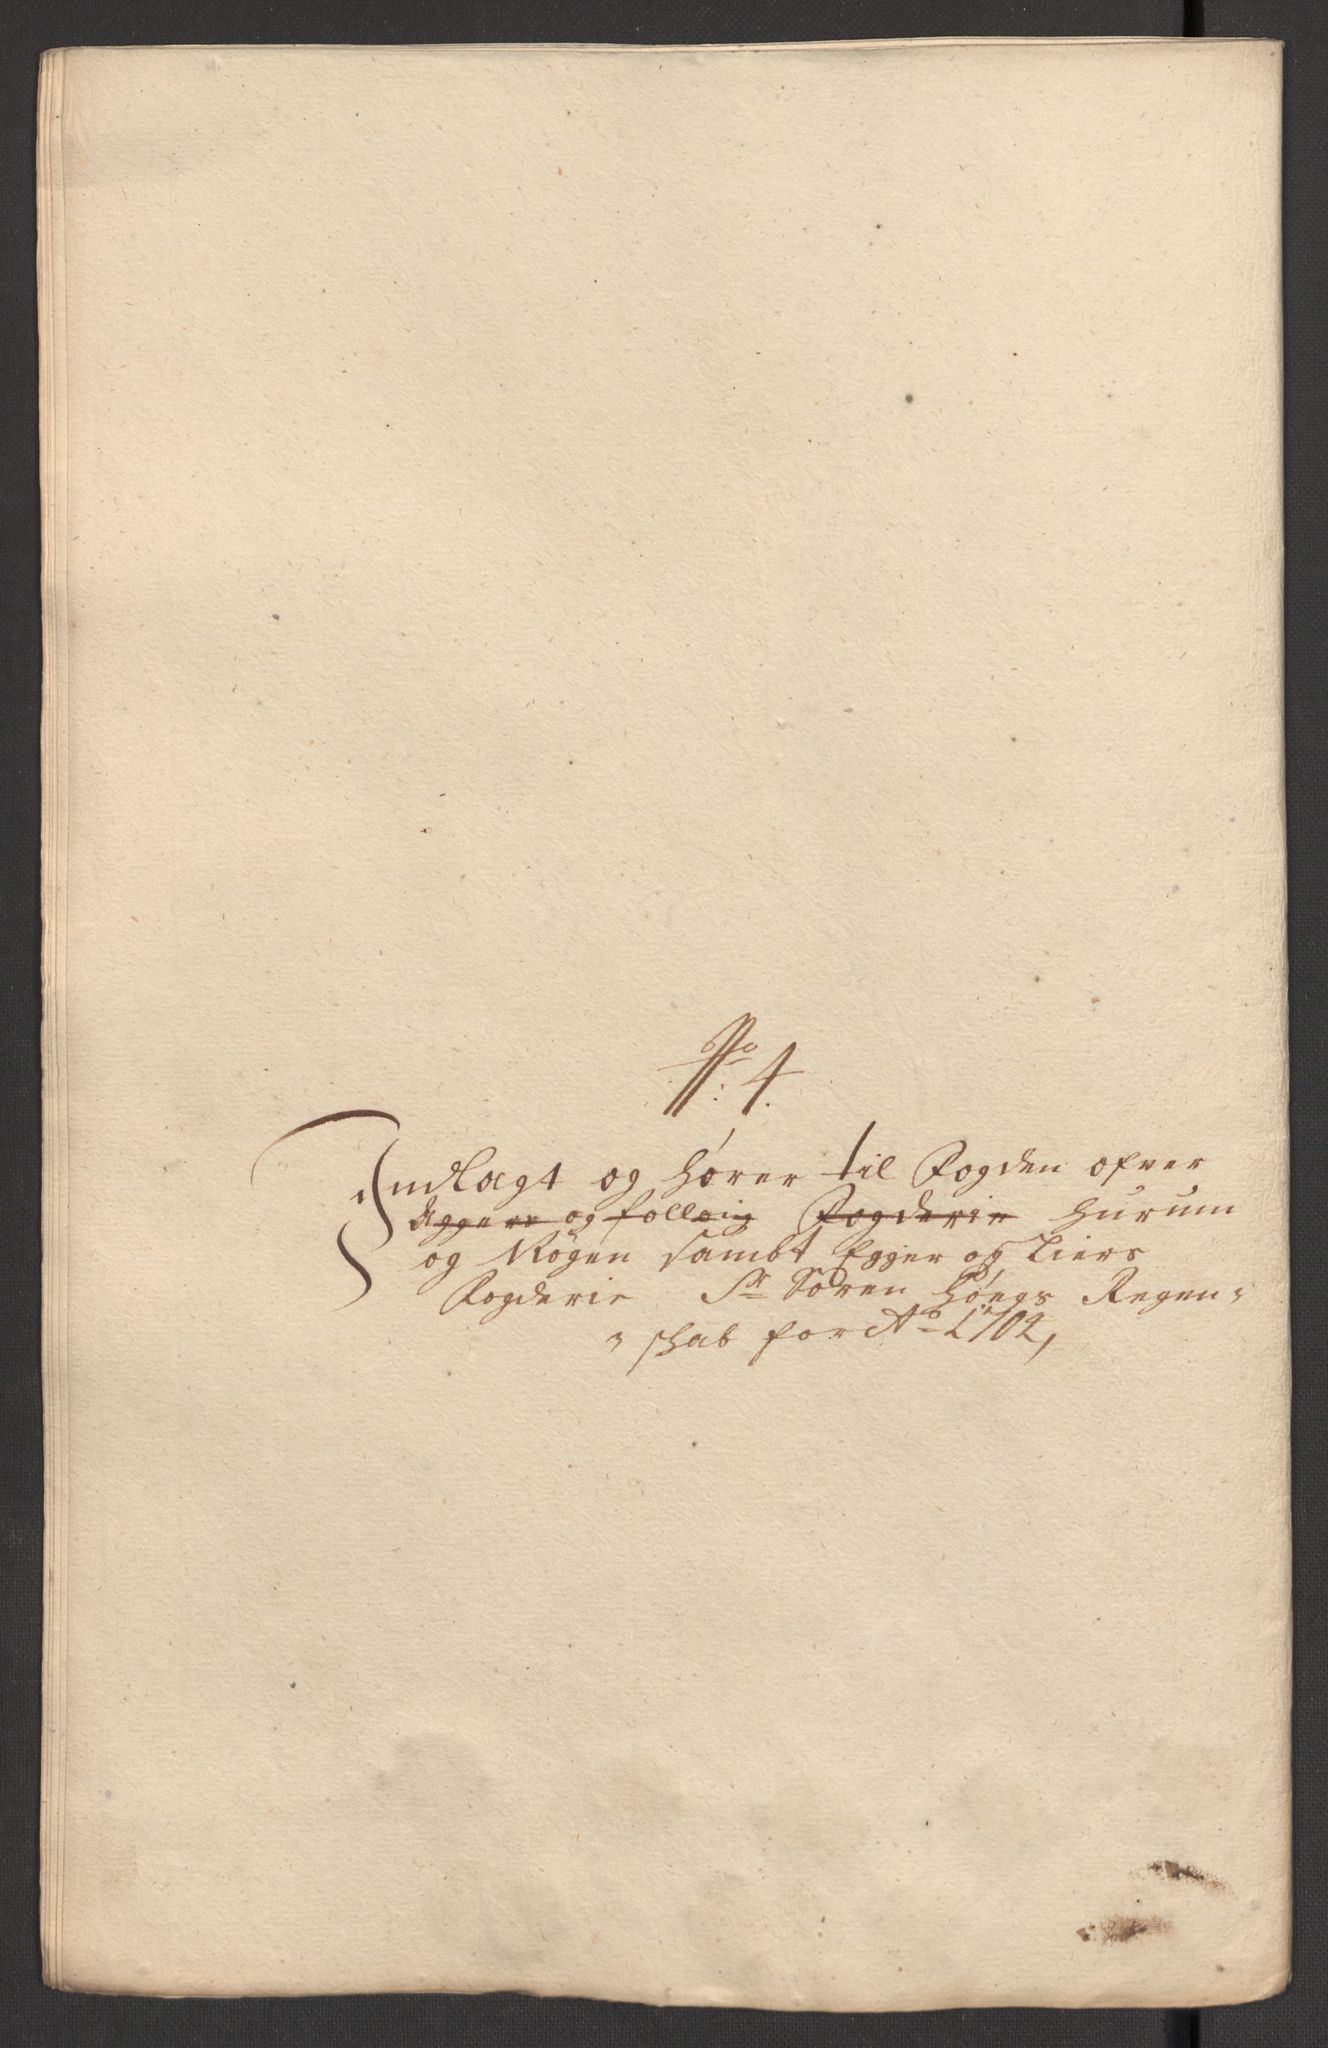 No: 4.
Indlagt og hører til Fogden ofver
Aggers og Folloug Fogderie Hurum
og Røgen sambt Egger og Liers
Fogderie Sr Søren Høegs Regen-
-skab for Ao 1704,